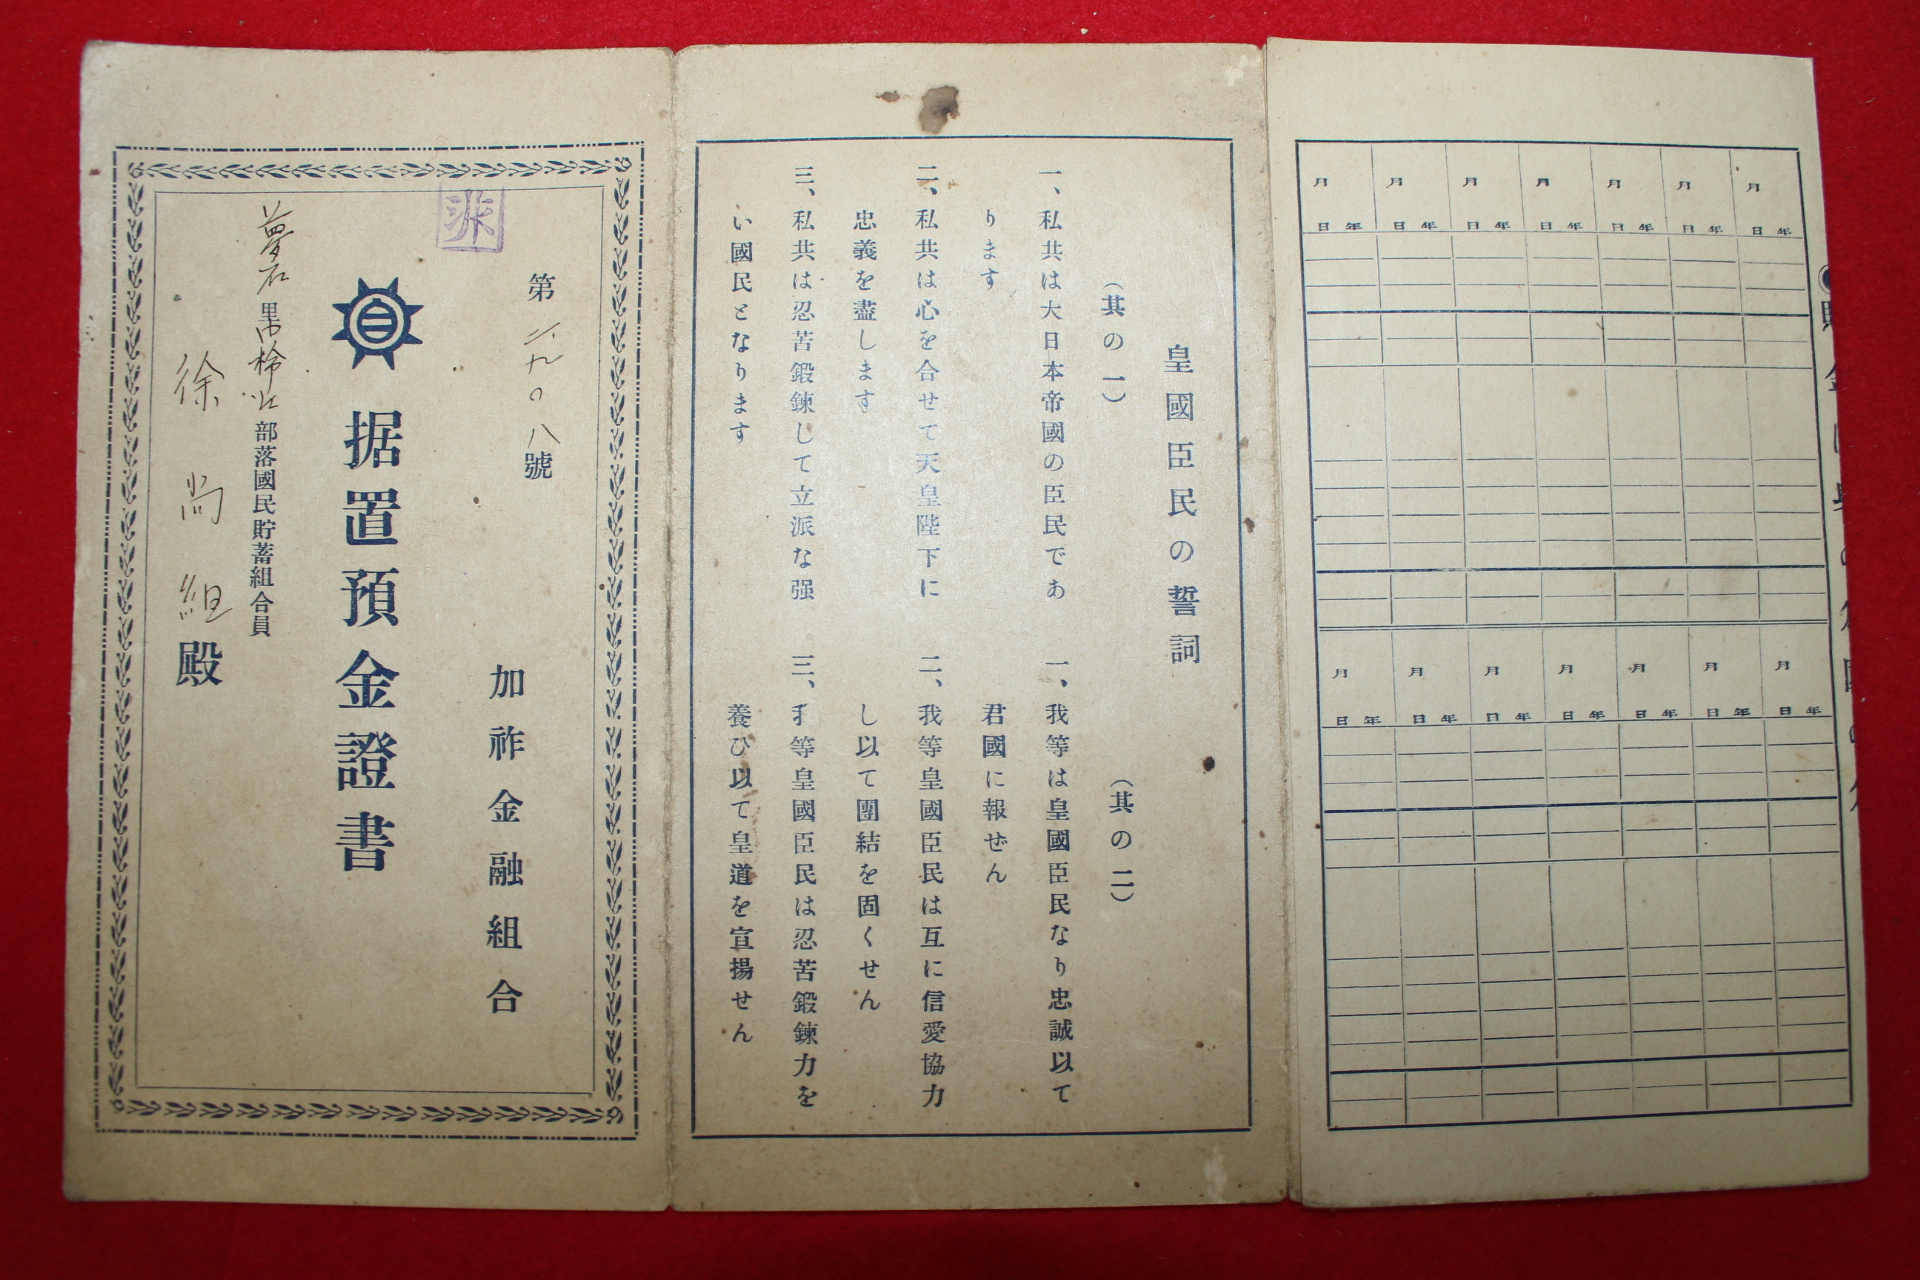 第二九〇八號
加祚金融組合
据置預金證書
里
部落國民貯蓄組合員
徐尚組殿
皇國臣民の誓詞
(其の一)
一、私共は大日本帝國の臣民であ
ります
二、私共は心を合せて天皇陛下に
忠義を盡します
三、私共は忍苦鍛鍊して立派な强
い國民となります
(其の二)
一、我等は皇國臣民なり忠誠以て
君國に報ぜん
二、我等皇國臣民は互に信愛協力
し以て團結を固くせん
三、我等皇國臣民は忍苦鍛鍊力を
養ひ以て皇道を宣揚せん
月 月 月 月 月 月 月
日 年 日 年 日 年 日 年 日 年 日 年 日 年
月 月 月 月 月 月 月
日 年 日 年 日 年 日 年 日 年 日 年 日 年